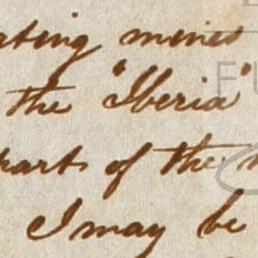 ating mines
the "Iberia"
parts of the
I may be